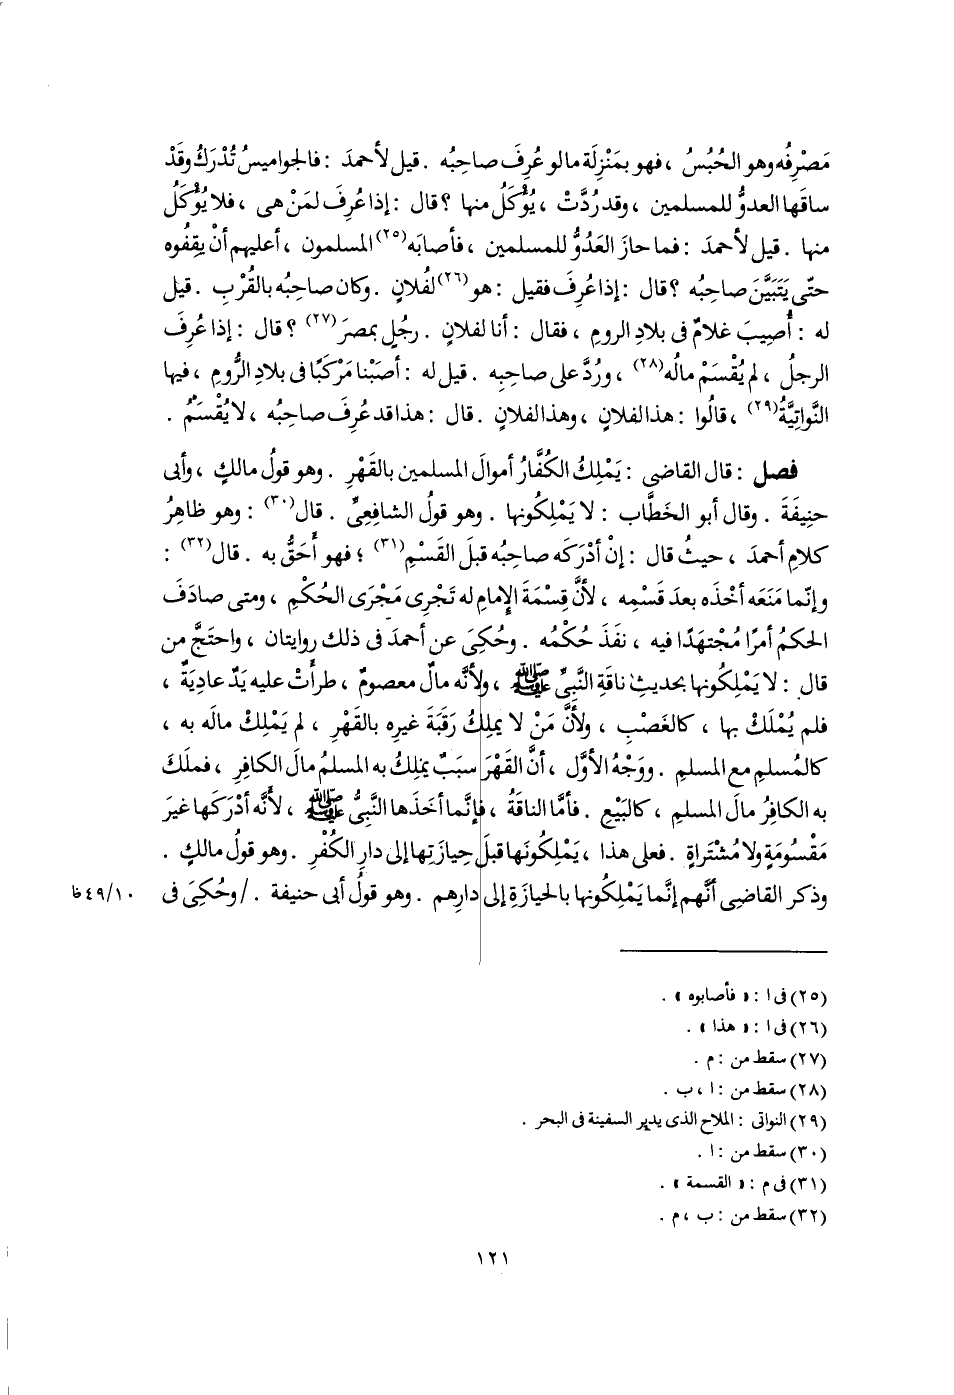 مَصْرِفُه وهو الحُبُسُ ، فهو بمَنْزِلَة ما لو عُرِفَ صاحِبُه . قيل لأحمدَ : فالجواميسُ تُدْرَكُ وقَدْ
ساقَها العدوُّ للمسلمين ، وقد رُدَّتْ ، يُؤْكَلُ منها ؟ قال : إذا عُرِفَ لمَنْ هى ، فلا يُؤْكَلُ
منها . قيل لأحمدَ : فما حازَ العَدُوُّ للمسلمين ، فأصابَه(٢٥) المسلمون ، أعليهم أنْ يقِفُوه
حتّى يَتَبَيَّنَ صاحِبُه ؟ قال : إذا عُرِفَ فقيل : هو(٢٦) لفُلانٍ . وكان صاحِبُه بالقُرْبِ . قيل
له : أُصِيبَ غلامٌ فى بلادِ الرومِ ، فقال : أنا لفلانٍ . رجُلٍ بمصرَ(٢٧) ؟ قال : إذا عُرِفَ
الرجلُ ، لم يُقْسَمْ مالُه(٢٨) ، ورُدَّ على صاحبِه . قيل له : أصَبْنا مَرْكَبًا فى بلادِ الرُّومِ ، فيها
النَّواتِيَّةُ(٢٩) ، قالُوا : هذا لفلانٍ ، وهذا لفلانٍ . قال : هذا قد عُرِفَ صاحِبُه ، لا يُقْسَمُ .
فصل : قال القاضى : يَمْلِكُ الكُفَّارُ أموالَ المسلمين بالقَهْرِ . وهو قولُ مالكٍ ، وأبى
حنيفَةَ . وقال أبو الخَطَّاب : لا يَمْلِكُونها . وهو قولُ الشافِعِىِّ . قال(٣٠) : وهو ظاهِرُ
كلامِ أحمدَ ، حيثُ قال : إنْ أدْرَكَه صاحِبُه قبلَ القَسْمِ(٣١) ؛ فهو أحَقُّ به . قال(٣٢) :
وإنّما مَنَعَه أخْذَه بعدَ قَسْمِه ، لأنَّ قِسْمَةَ الإمامِ له تَجْرِى مَجْرَى الحُكْمِ ، ومتى صادَفَ
الحكمُ أمرًا مُجْتهَدًا فيه ، نفَذَ حُكْمُه . وحُكِىَ عن أحمدَ فى ذلك روايتان ، واحتَجَّ من
قال : لا يَمْلِكُونها بحديثِ ناقَةِ النَّبِىِّ ﷺ ، ولأنَّه مالٌ معصومٌ ، طرأَتْ عليه يَدٌ عادِيَةٌ ،
فلم يُمْلَكْ بها ، كالغَصْبِ ، ولأنَّ مَنْ لا يملِكُ رَقَبَةَ غيرِه بالقَهْرِ ، لم يَمْلِكْ مالَه به ،
كالمُسلمِ مع المسلمِ . ووَجْهُ الأوَّلِ ، أنَّ القَهْرَ سبَبٌ يملِكُ به المسلمُ مالَ الكافِرِ ، فملَكَ
به الكافِرُ مالَ المسلمِ ، كالبَيْعِ . فأمَّا الناقَةُ ، فإنَّما أخَذَها النَّبِىُّ ﷺ ، لأنَّه أدْرَكَها غيرَ
مَقْسُومَةٍ ولا مُشْتراةٍ . فعلى هذا ، يَمْلِكُونَها قبلَ حِيازَتِها إلى دارِ الكُفْرِ . وهو قولُ مالكٍ .
وذكر القاضِى أنَّهم إنَّما يَمْلِكُونها بالحيازَةِ إلى دارِهم . وهو قولُ أبى حنيفة . / وحُكِىَ فى ١٠/٤٩ظ
(٢٥) فى ا : « فأصابوه » .
(٢٦) فى ا : « هذا » .
(٢٧) سقط من : م .
(٢٨) سقط من : ا ، ب .
(٢٩) النواتى : الملاح الذى يدير السفينة فى البحر .
(٣٠) سقط من : ا .
(٣١) فى م : « القسمة » .
(٣٢) سقط من : ب ، م .
١٢١